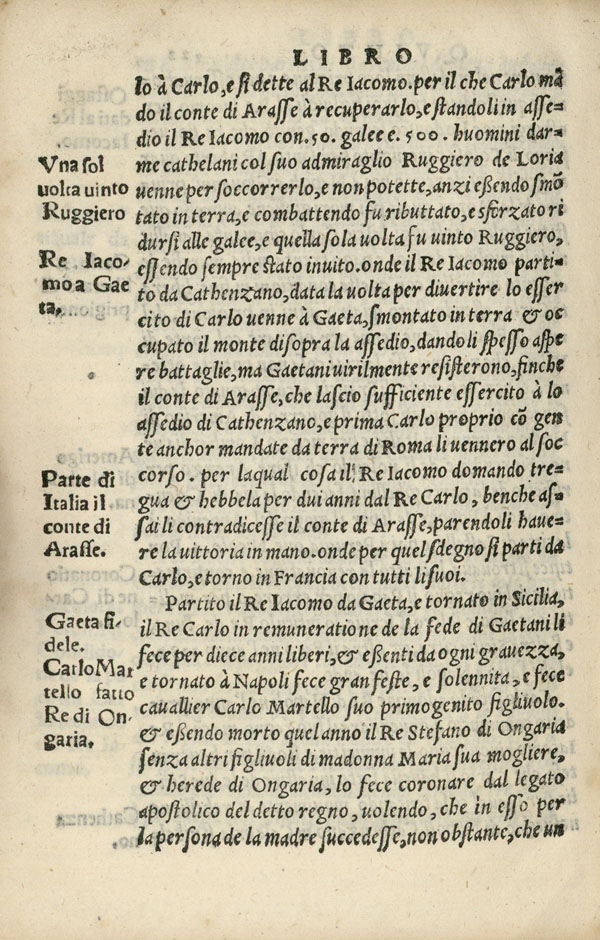 LIBRO
lo à Carlo, e si dette al Re Iacomo. per il che Carlo mã
do il conte di Arasse à recuperarlo, e standoli in asse=
dio il Re Iacomo con .50. galee e. 500. huomini dar=
me cathelani col suo admiraglio Ruggiero de Loria
uenne per soccorrerlo, e non potette, anzi eßendo smõ
tato in terra, e combattendo fu ributtato, e sforzato ri
dursi alle galee, e quella sola uolta fu uinto Ruggiero,
essendo sempre stato inuito. onde il Re Iacomo parti=
to da Cathenzano, data la uolta per diuertire lo esser
cito di Carlo uenne à Gaeta, smontato in terra & oc
cupato il monte disopra la assedio, dandoli spesso aspe
re battaglie, ma Gaetani uirilmente resisterono, finche
il conte di Arasse, che lascio sufficiente essercito à lo
assedio di Cathenzano, e prima Carlo proprio cõ gen
te anchor mandate da terra di Roma li uennero al soc
corso. per laqual cosa il Re Iacomo domando tre=
gua & hebbela per dui anni dal Re Carlo, benche as=
sai li contradicesse il conte di Arasse, parendoli haue=
re la uittoria in mano. onde per quel sdegno si parti da
Carlo, e torno in Francia con tutti li suoi.
Partito il Re Iacomo da Gaeta, e tornato in Sicilia,
il Re Carlo in remuneratione de la fede di Gaetani li
fece per diece anni liberi, & eßenti da ogni grauezza,
e tornato à Napoli fece gran feste, e solennita, e fece
cauallier Carlo Martello suo primogenito figliuolo.
& eßendo morto quel anno il Re Stefano di Ongaria
senza altri figliuoli di madonna Maria sua mogliere,
& herede di Ongaria, lo fece coronare dal legato
apostolico del detto regno, uolendo, che in esso per
la persona de la madre succedesse, non obstante, che un
Vna sol
uolta uinto
Ruggiero
Re Iaco-
mo a Gae
ta.
Parte di
Italia il
conte di
Arasse.
Gaeta fi-
dele.
Carlo Mar
tello fatto
Re di On-
garia.